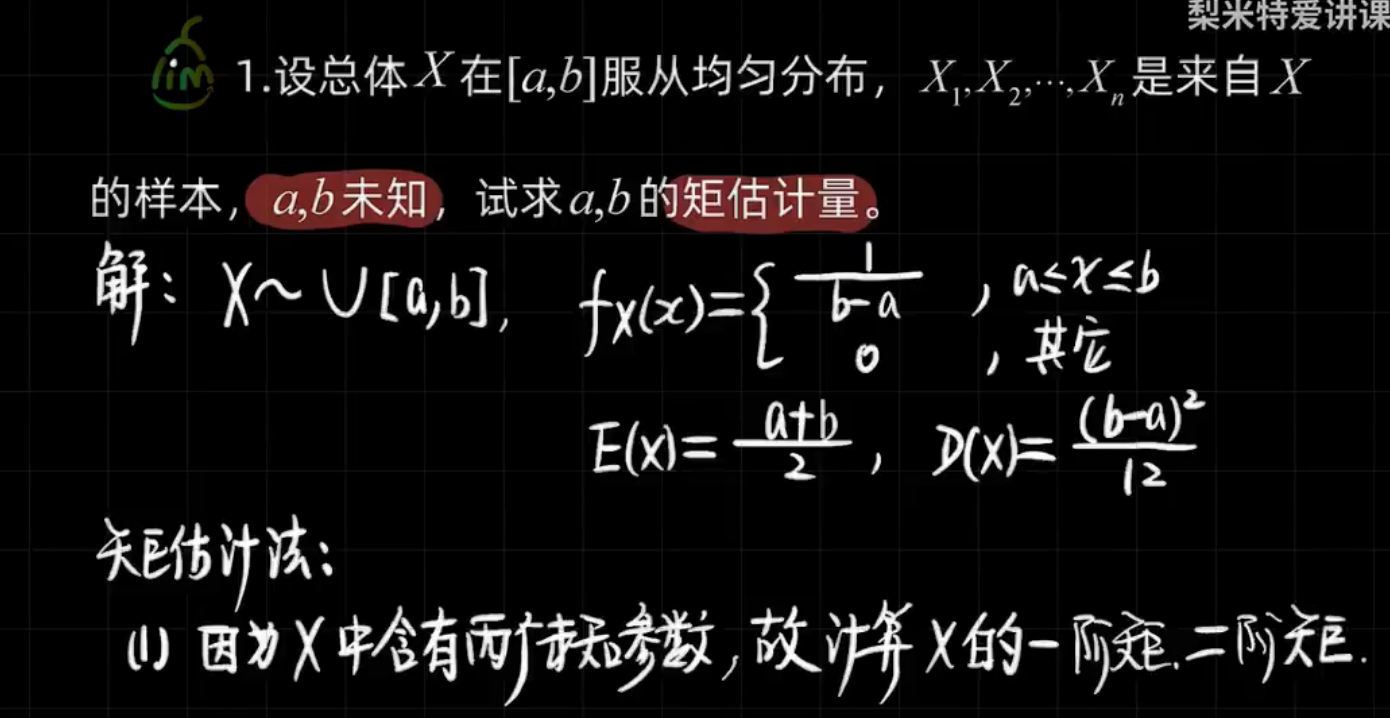 梨米特爱讲课
lim
1.设总体X在[a,b]服从均匀分布，X₁,X₂,⋯,Xₙ是来自X
的样本，a,b未知，试求a,b的矩估计量。
解：X～U[a,b]，f_X(x)={ 1/(b-a)，a≤x≤b
0，其它
E(X)= (a+b)/2，D(X)= (b-a)²/12
矩估计法：
(1) 因为X中含有两个未知参数，故计算X的一阶矩、二阶矩.